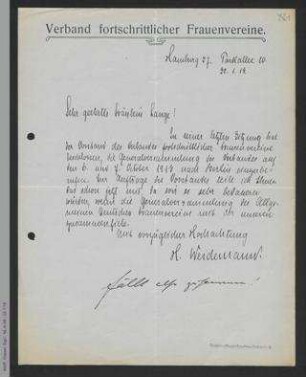 261
Verband fortschrittlicher Frauenvereine.
Hamburg 37. Parkallee 10
31. 1. 19
Sehr geehrtes Fräulein Lange!
In seiner letzten Sitzung hat
der Vorstand des Verbandes fortschrittlicher Frauenvereine
beschlossen, die Generalversammlung des Verbandes auf
den 6. und 7. Oktober 1919 nach Berlin einzuberu-
fen. Im Auftrage des Vorstandes teile ich Ihnen
das schon jetzt mit, da wir es sehr bedauern
würden, wenn die Generalversammlung des Allge-
meinen Deutschen Frauenvereins mit der unseren
zusammenfiele.
Mit vorzüglicher Hochachtung
H. Weidemann.
fällt zusammen!